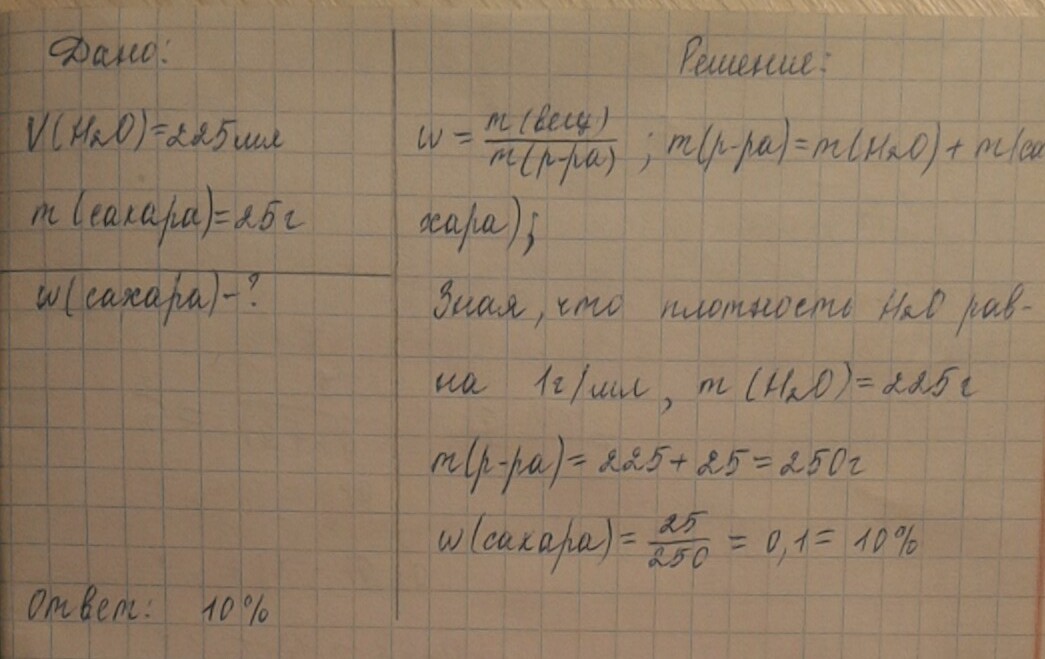 Дано:
V(H₂O)=225мл
m(сахара)=25г
w(сахара)-?
Ответ: 10%
Решение:
w = m(вещ)/m(р-ра) ; m(р-ра)=m(H₂O)+m(са
хара);
Зная, что плотность H₂O рав-
на 1г/мл, m(H₂O)=225г
m(р-ра)=225+25=250г
w(сахара)=25/250=0,1=10%